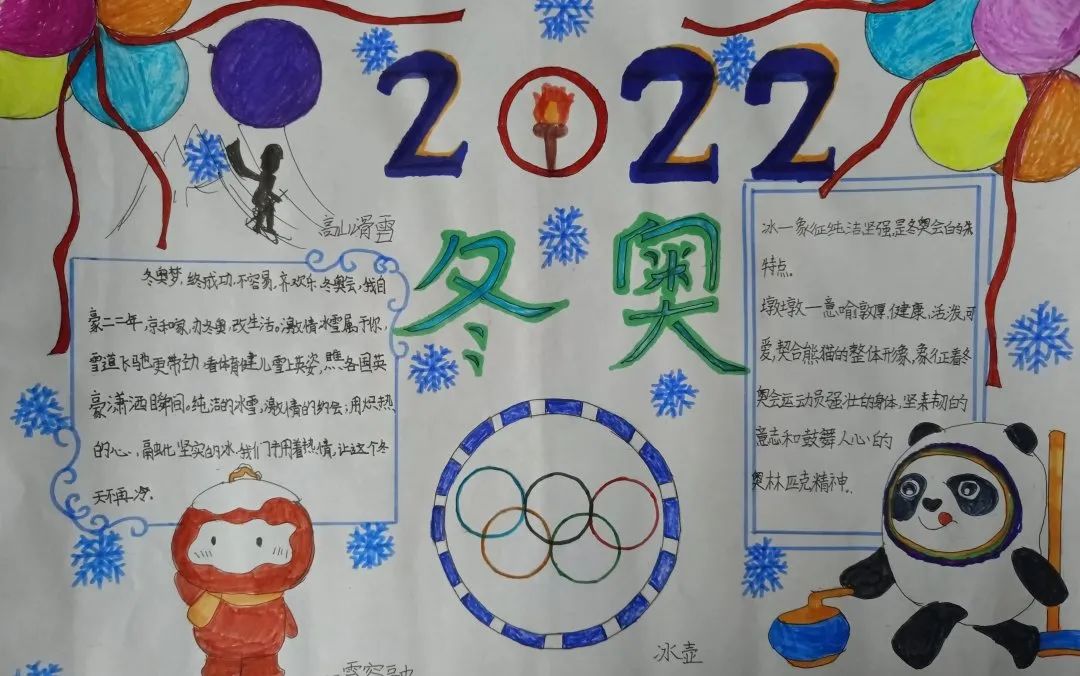 2022
冬奥
高山滑雪
冬奥梦,终成功,不容易,齐欢乐,冬奥会,我自
豪二二年,京和家,办冬奥,改生活。激情冰雪属于你,
雪道飞驰更带动 看体育健儿雪上英姿,瞧各国英
豪潇洒瞬间。纯洁的冰雪,激情的约会;用炽热
的心,融化坚实的冰,我们用着热情,让这个冬
天不再冷。
冰一象征纯洁坚强,是冬奥会的特
点。
墩墩一意喻敦厚,健康,活泼,可
爱,契合熊猫的整体形象,象征着冬
奥会运动员强壮的身体,坚韧的
意志和鼓舞人心的
奥林匹克精神。
冰壶
雪容融